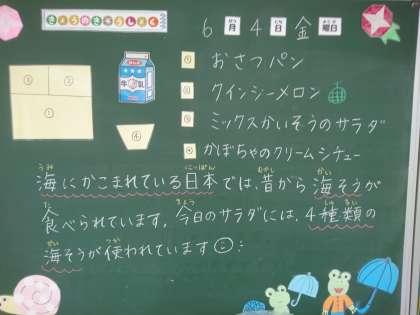 きょうのきゅうしょく
6月4日金曜日
① おさつパン
② クインシーメロン
③ ミックスかいそうのサラダ
④ かぼちゃのクリームシチュー
③ ②
①
④
牛乳
海にかこまれている日本では、昔から海そうが
食べられています。今日のサラダには、4種類の
海そうが使われています